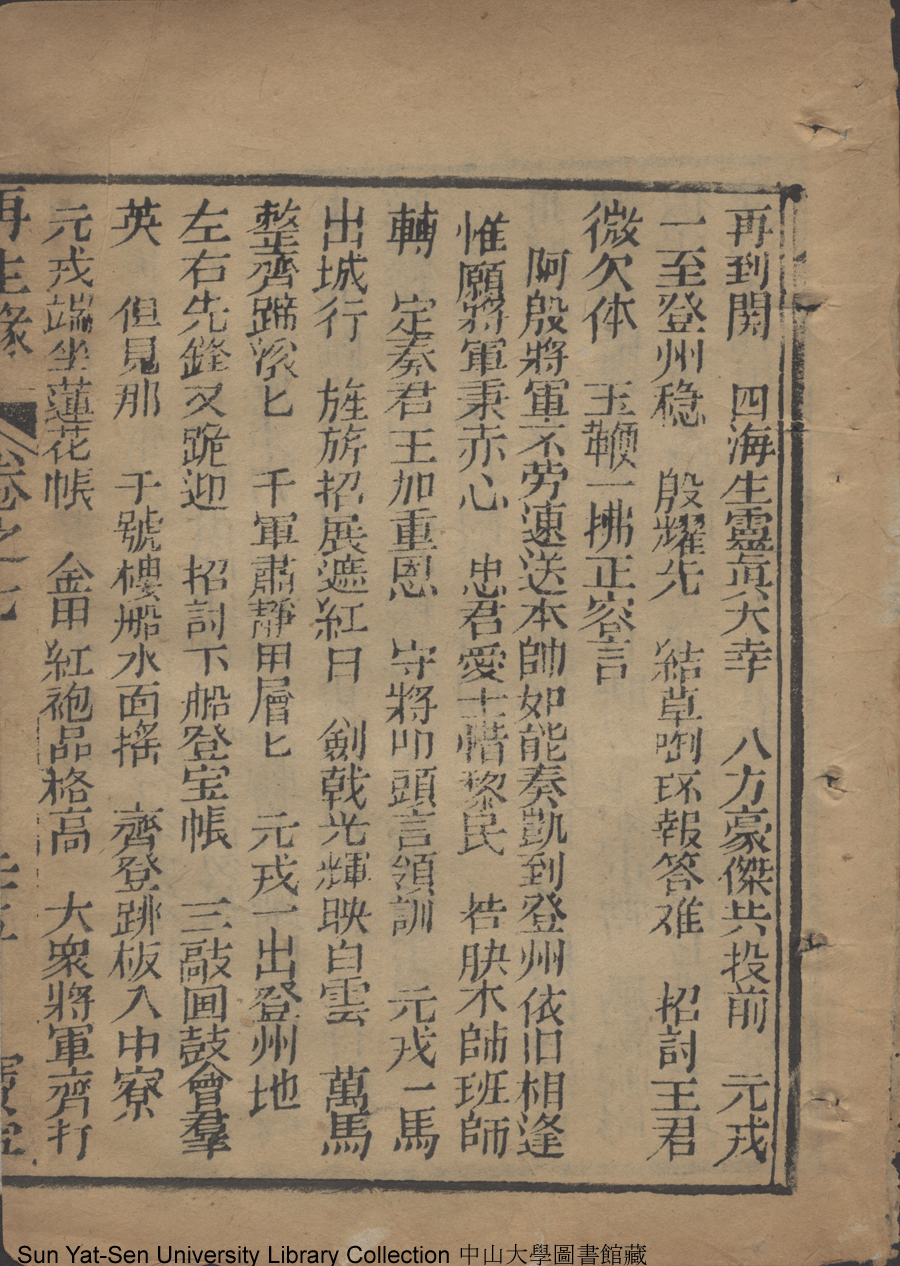 再到関　四海生靈真大幸　八方豪傑共投前　元戎
一至登州穏　殷耀先　結草啣环報答难　招討王君
微欠体　玉鞭一拂正容言
阿殷將軍不劳速送本帥如能奏凱到登州依旧相逢
惟願將軍秉赤心　忠君愛士惜黎民　若聀本師班師
轉　定奏君王加重恩　守將叩頭言領訓　元戎一馬
出城行　旌旂招展遮紅日　劍戟光輝映白雲　萬馬
整齊蹄滚匕　千軍肅靜甲層匕　元戎一出登州地
左右先鋒又跪迎　招討下船登宝帳　三敲画鼓會羣
英　但見那　于號樓船水面搖　齊登跳板入中寮
元戎端坐蓮花帳　金甲紅袍品格高　大衆將軍齊打
再生緣　卷之七
Sun Yat-Sen University Library Collection 中山大學圖書館藏